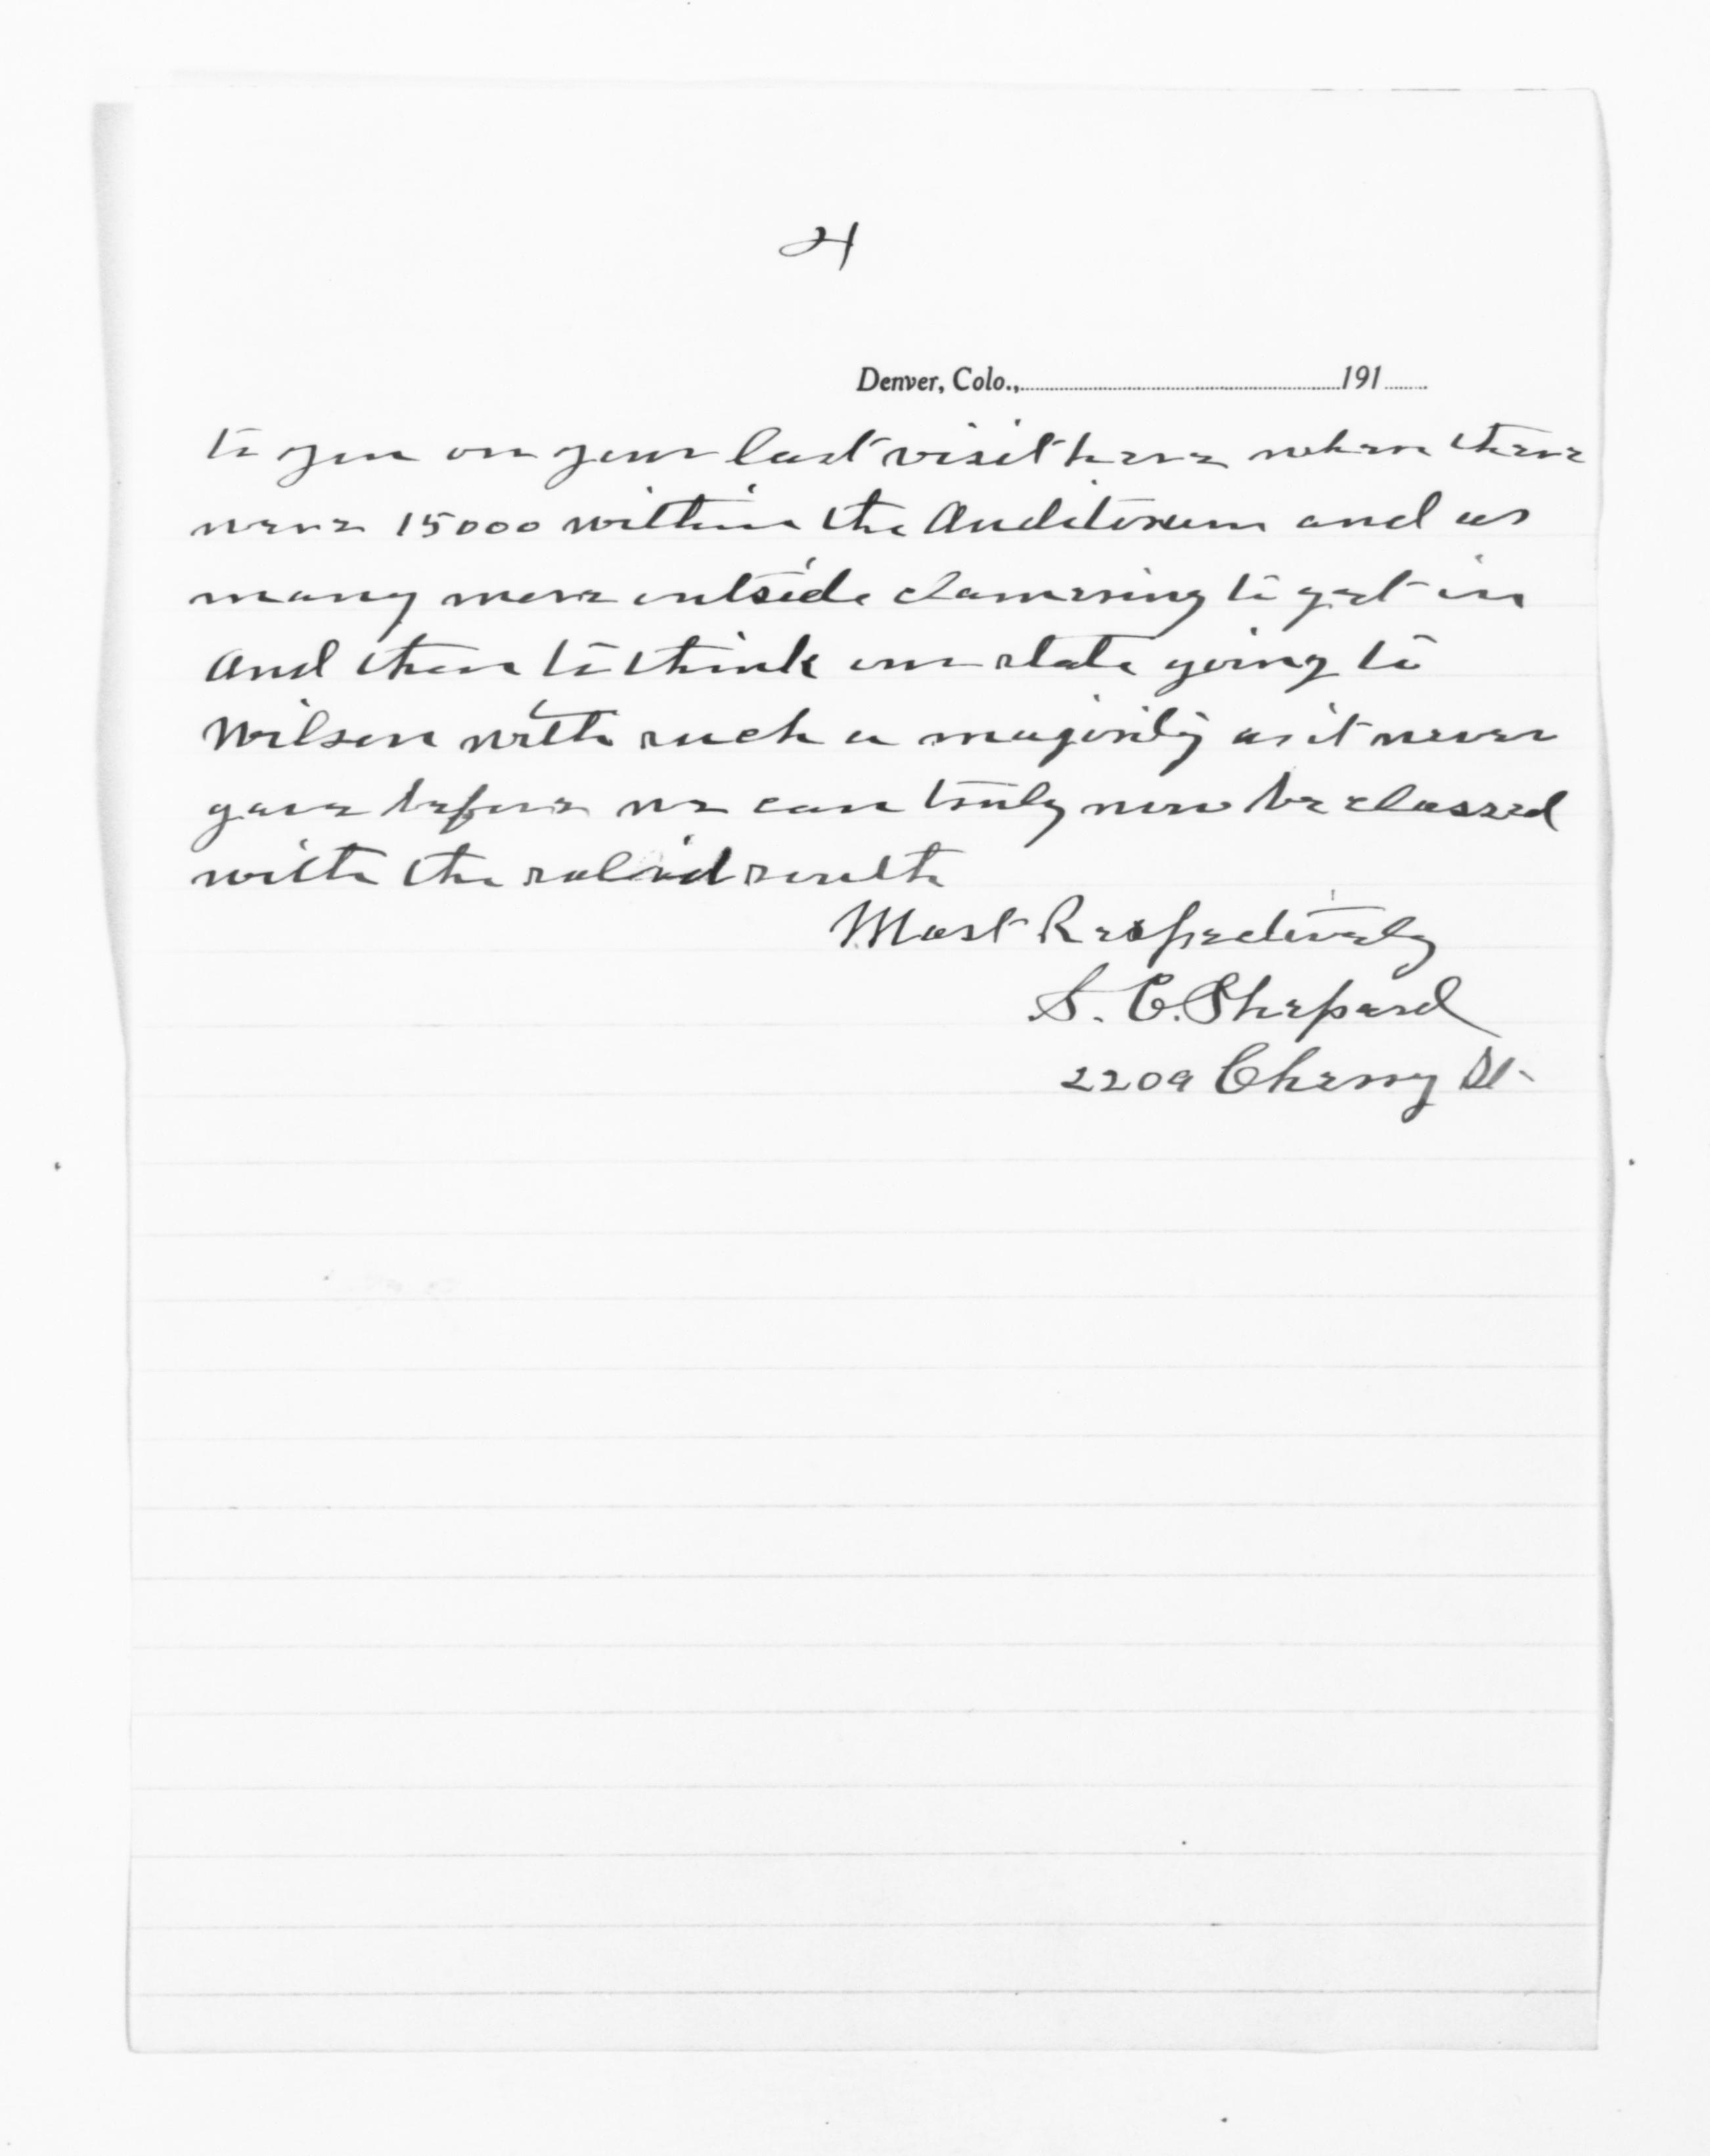 4
Denver, Colo., 191
to you on your last visit here when there
were 15000 within the Auditorum and as
many more outside clamering to get in
And then to think our state going to
Wilson with such a majority as it never
gave before we can truly now be classed
with the solid south
Most Respectively
S. C. Shepard
2209 Cherry St-